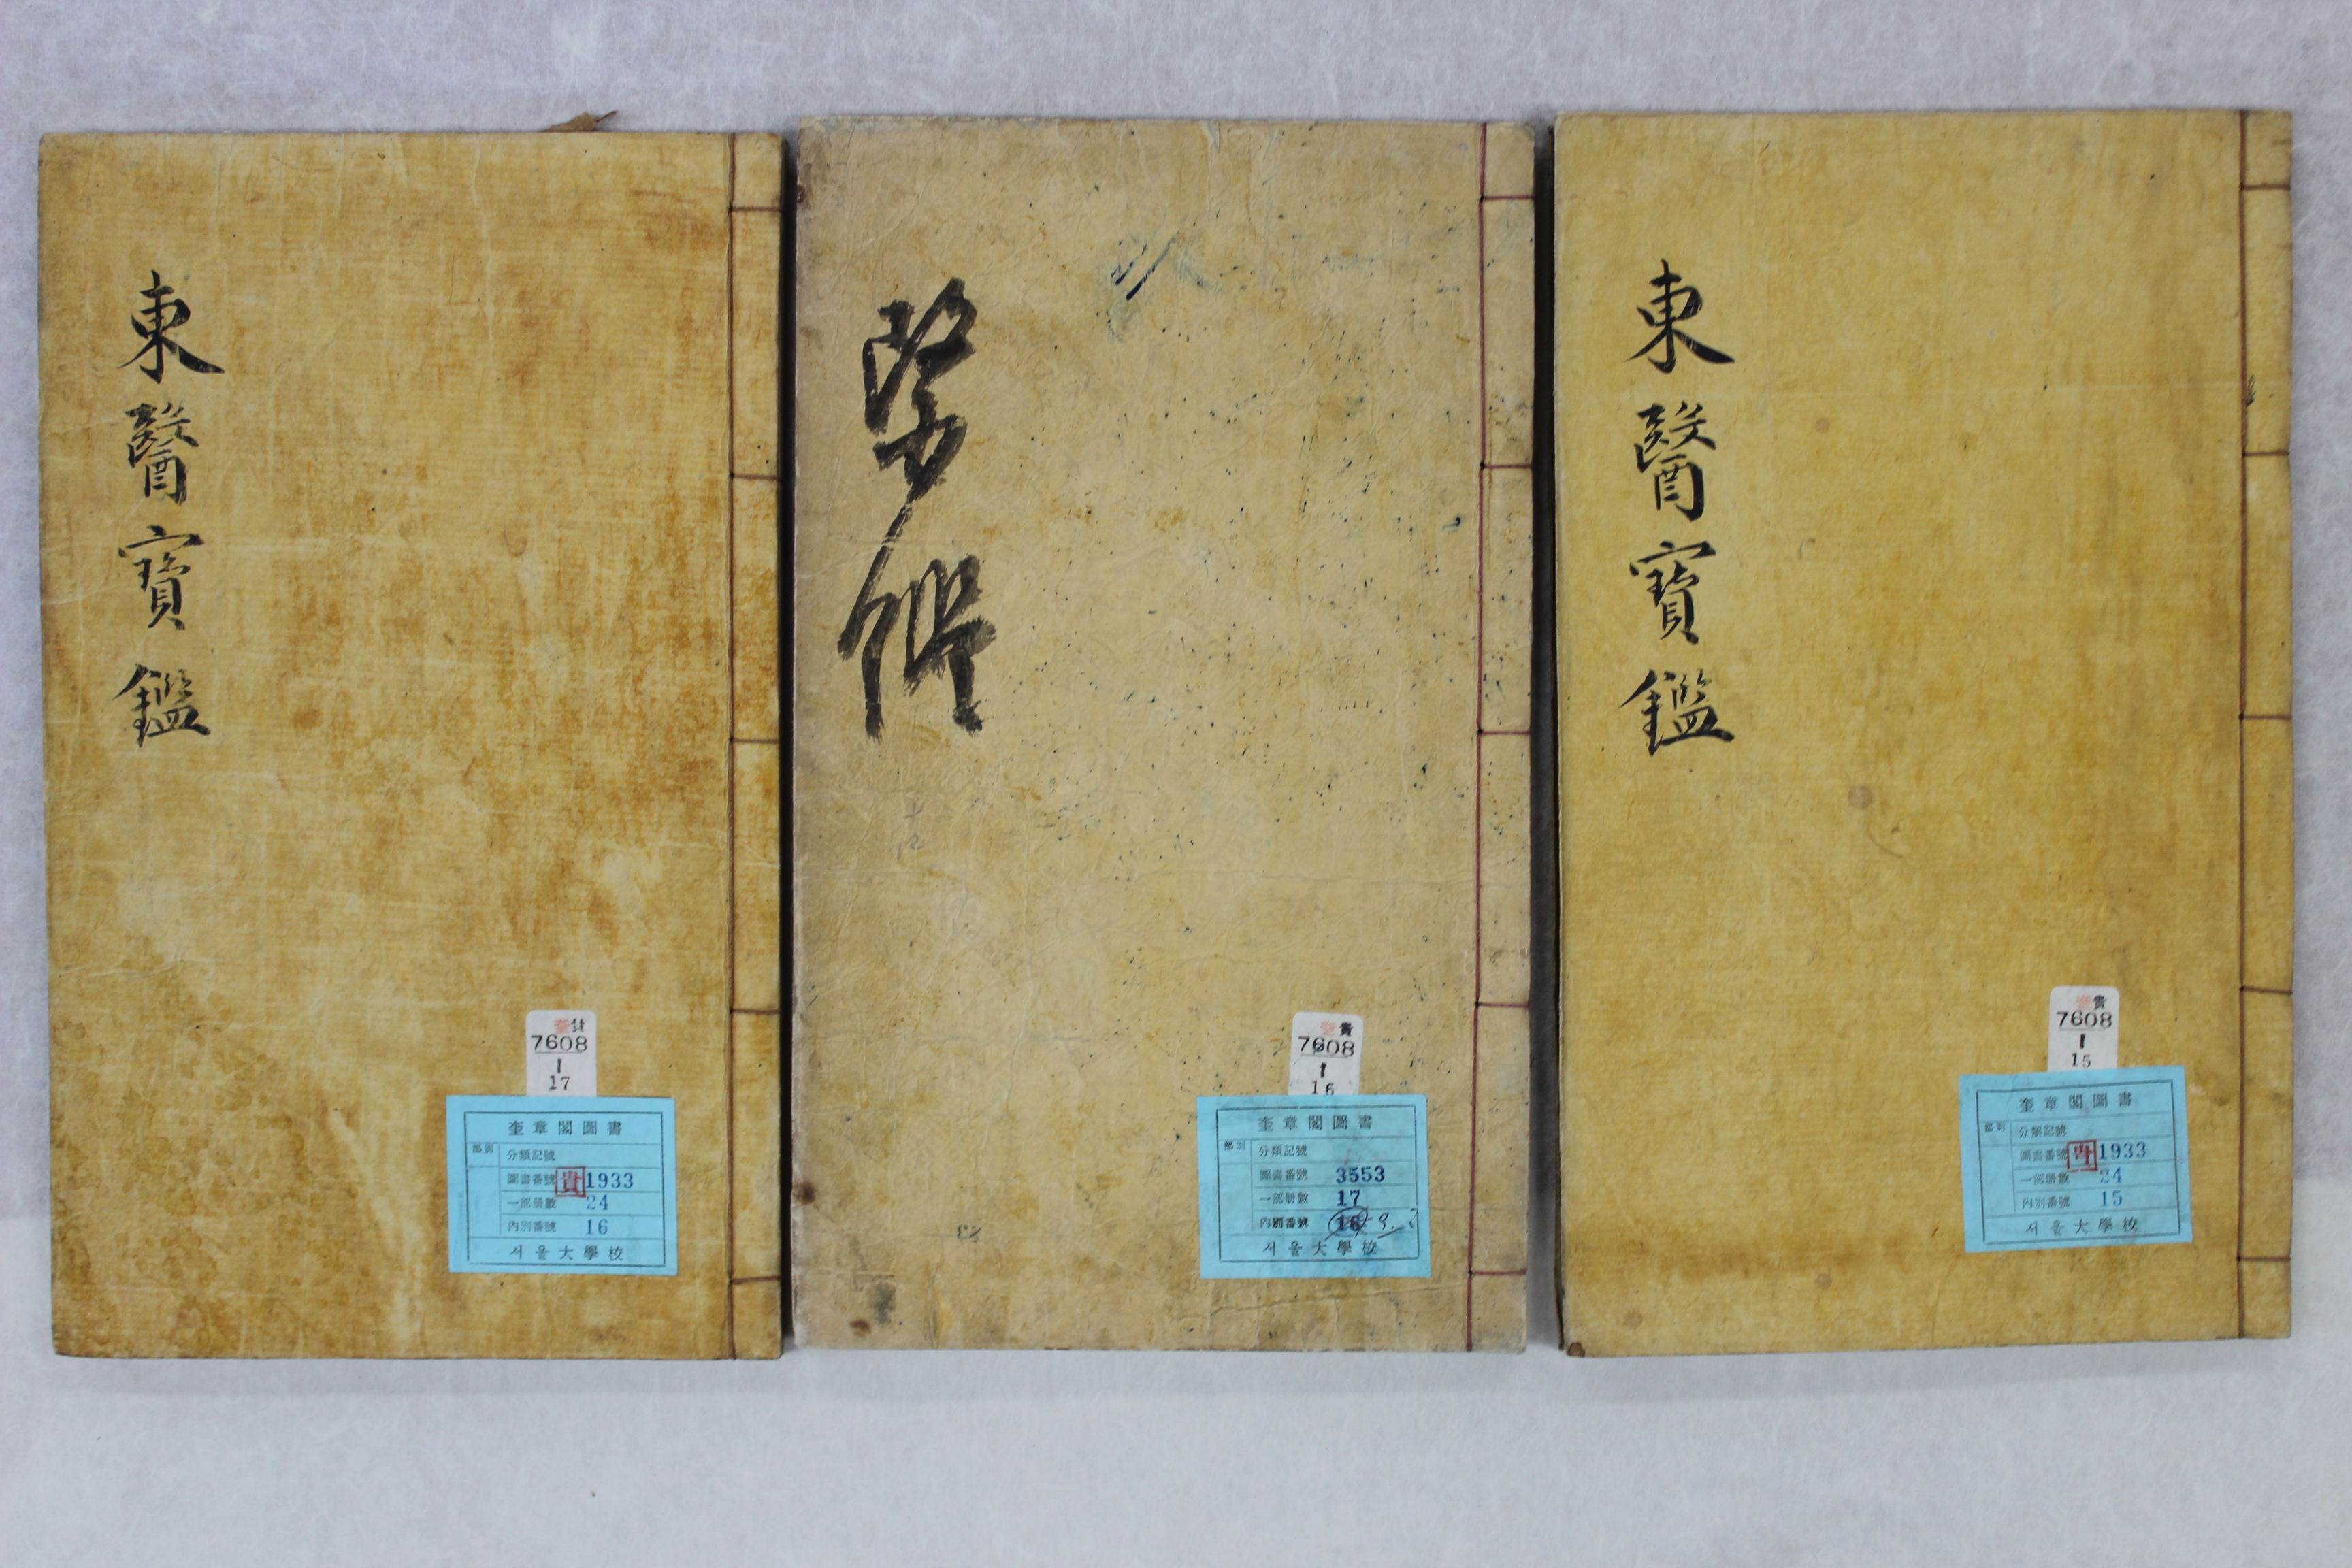 東醫寶鑑
7608
1
17
奎章閣圖書
部別
分類記號
圖書番號 貴 1933
一部册數 24
內別番號 16
서울大學校
貴
7608
1
16
奎章閣圖書
部別
分類記號
圖書番號 3553
一部册數 17
內別番號 16
서울大學校
東醫寶鑑
貴
7608
1
15
奎章閣圖書
部別
分類記號
圖書番號 1933
一部册數 24
內別番號 15
서울大學校